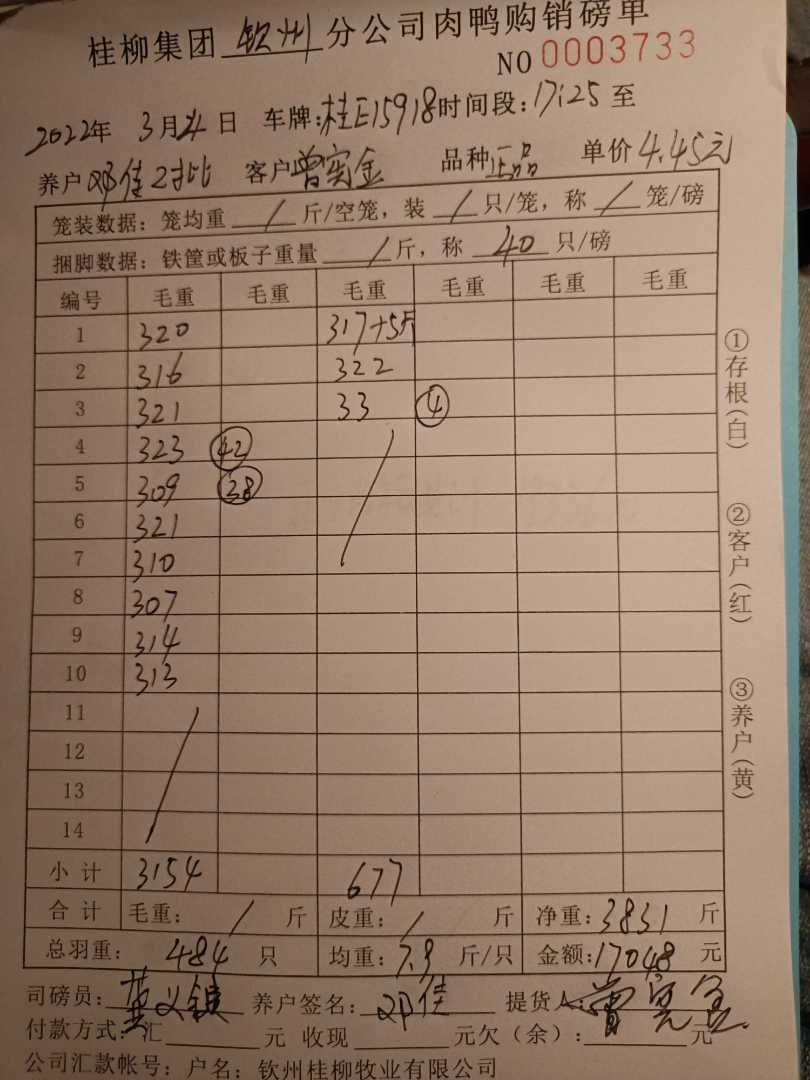 桂柳集团 钦州 分公司肉鸭购销磅单
NO 0003733
2022年 3月24日 车牌:桂E15918时间段:17:25 至
养户 邓佳对比 客户 曾宪金 品种 正品 单价 4.45元
笼装数据: 笼均重 / 斤/空笼, 装 / 只/笼, 称 / 笼/磅
捆脚数据: 铁筐或板子重量 / 斤, 称 40 只/磅
编号 毛重 毛重 毛重 毛重 毛重 毛重
1 320 317+5斤
2 316 322
3 321 33 4
4 323 42
5 309 38
6 321
7 310
8 307
9 314
10 313
11
12
13
14
小计 3154 677
合计 毛重: / 斤 皮重: / 斤 净重: 3831 斤
总羽重: 484 只 均重: 7.9 斤/只 金额: 17048 元
司磅员: 黄义镇 养户签名: 邓佳 提货人: 曾宪金
付款方式: 汇 元 收现 元欠(余): 元
公司汇款帐号: 户名: 钦州桂柳牧业有限公司
①存根(白)
②客户(红)
③养户(黄)